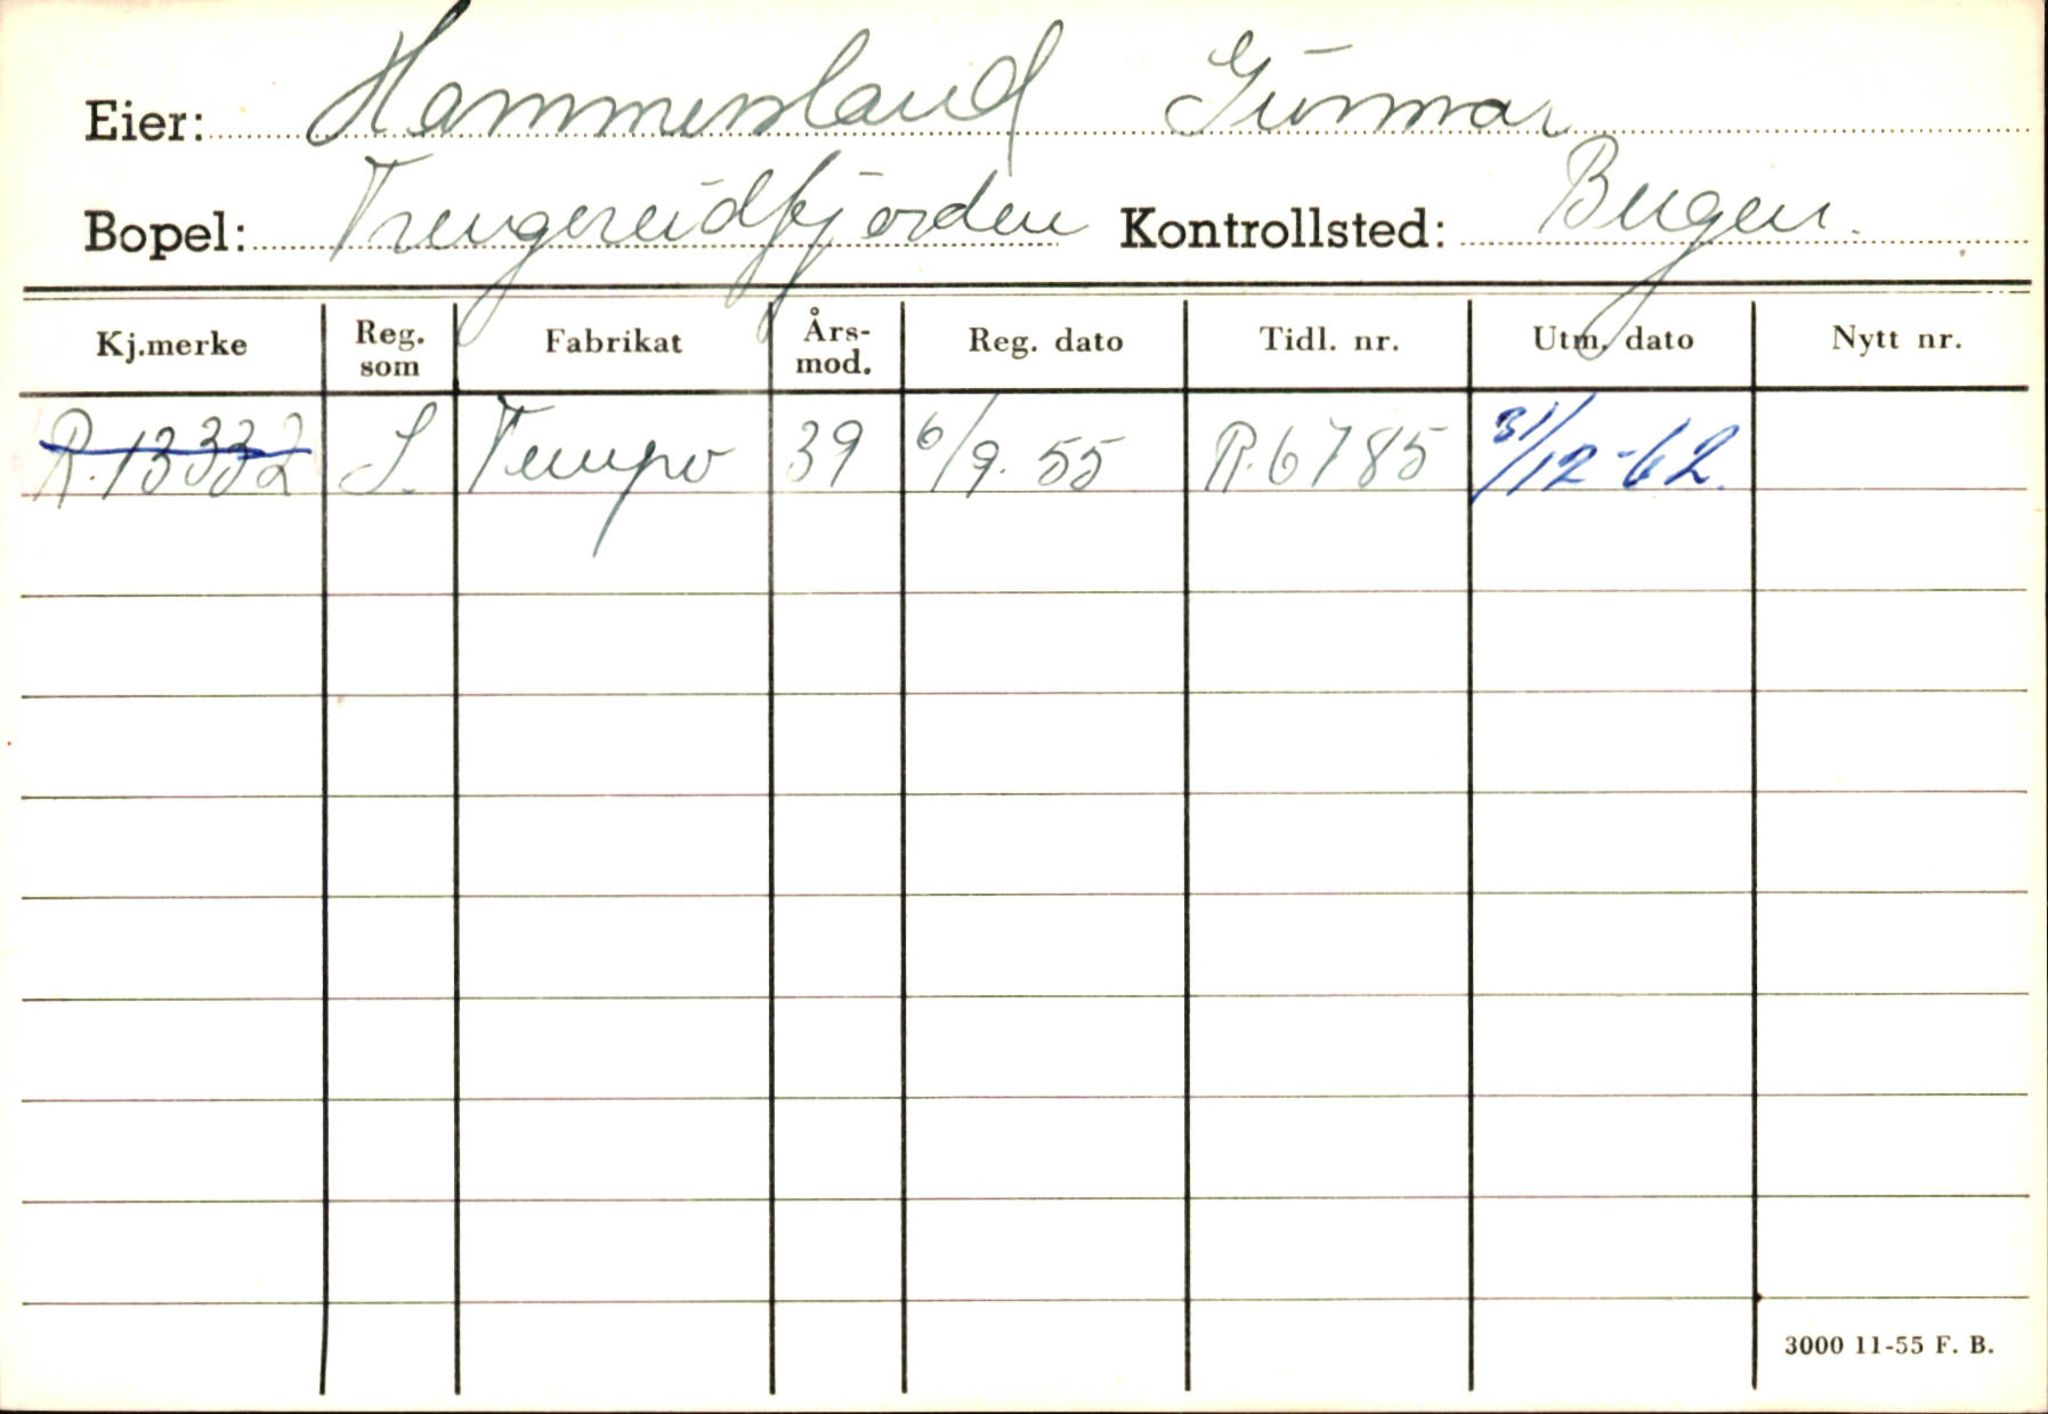 Eier: Hammersland Gunnar
Bopel: Trengereidfjorden Kontrollsted: Bergen.
Kj.merke Reg. som Fabrikat Års-mod. Reg. dato Tidl. nr. Utm. dato Nytt nr.
R.13332 S. Tempo 39 6/9. 55 R.6785 31/12-62.
3000 11-55 F. B.